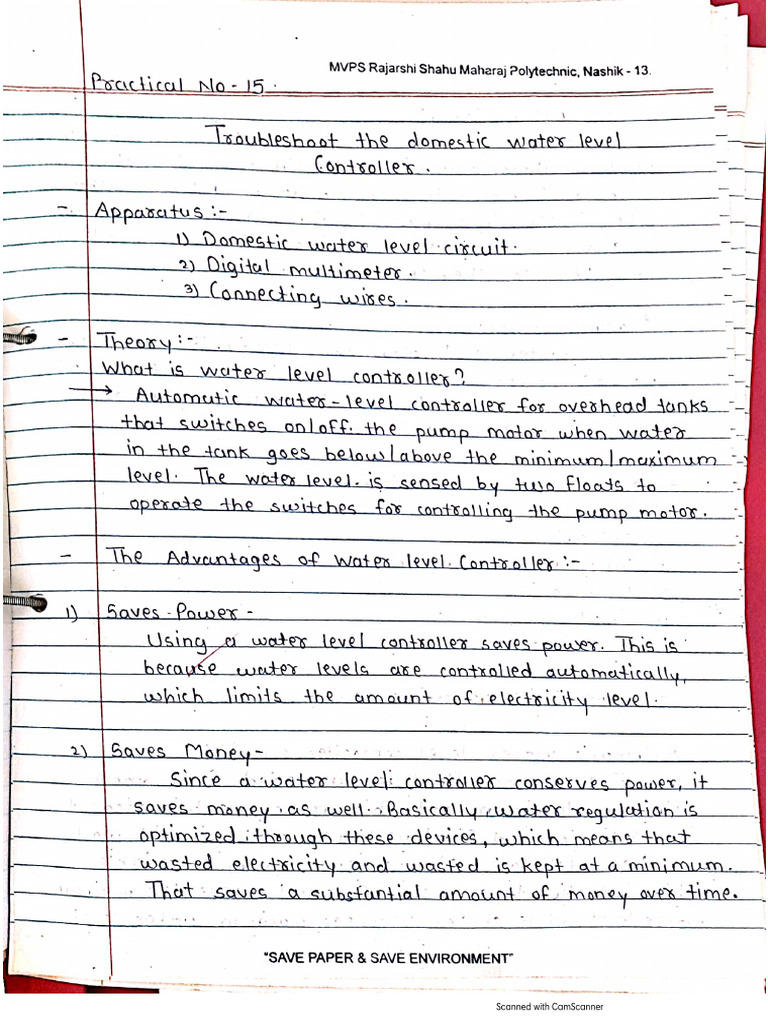 MVPS Rajarshi Shahu Maharaj Polytechnic, Nashik - 13.
Practical No - 15.
Troubleshoot the domestic water level
Controller.
- Apparatus :-
1) Domestic water level circuit.
2) Digital multimeter.
3) Connecting wires.
- Theory :-
What is water level controller?
→ Automatic water-level controller for overhead tanks
that switches on/off. the pump motor when water
in the tank goes below/above the minimum/maximum
level. The water level. is sensed by two floats to
operate the switches for controlling the pump motor.
- The Advantages of water level. Controller :-
1) Saves Power -
Using a water level controller saves power. This is
because water levels are controlled automatically,
which limits the amount of electricity level.
2) Saves Money -
Since a water level controller conserves power, it
saves money as well. Basically water regulation is
optimized through these devices, which means that
wasted electricity and wasted is kept at a minimum.
That saves a substantial amount of money over time.
"SAVE PAPER & SAVE ENVIRONMENT"
Scanned with CamScanner